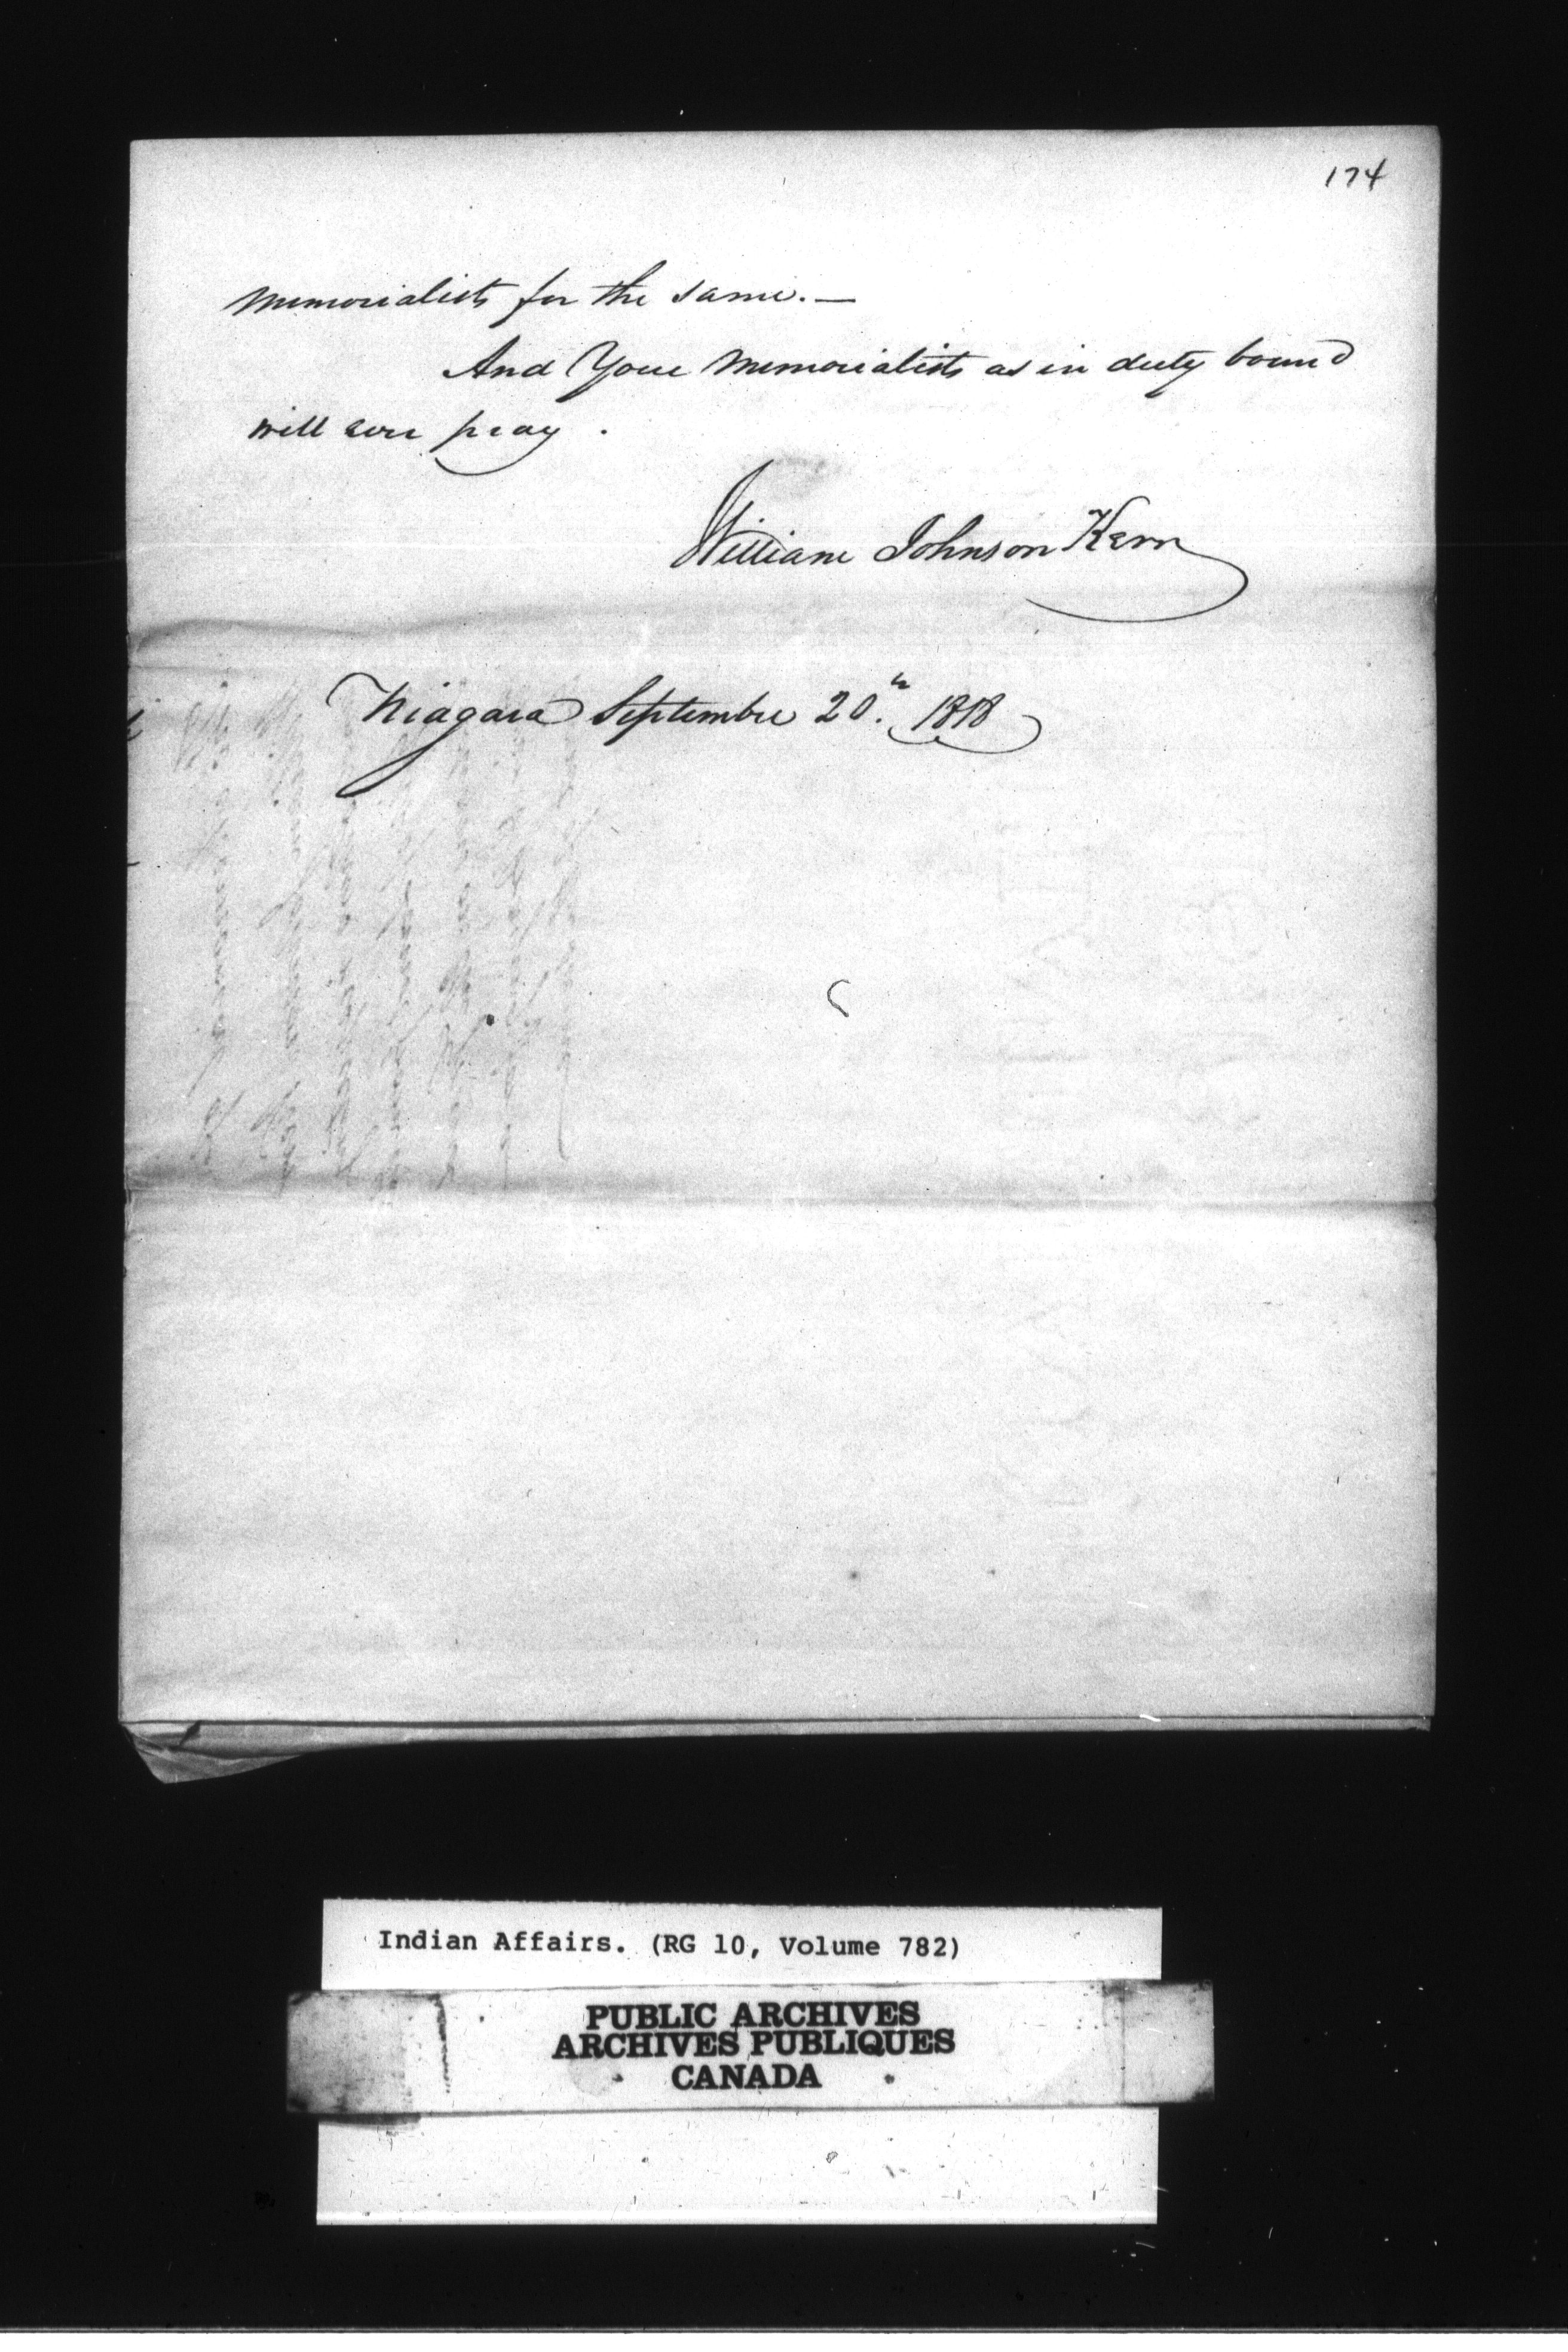 174
Memorialists for the same. —
And Your Memorialists as in duty bound
will ever pray.
William Johnson Kerr
Niagara September 20.th 1818
Indian Affairs. (RG 10, Volume 782)
PUBLIC ARCHIVES
ARCHIVES PUBLIQUES
CANADA